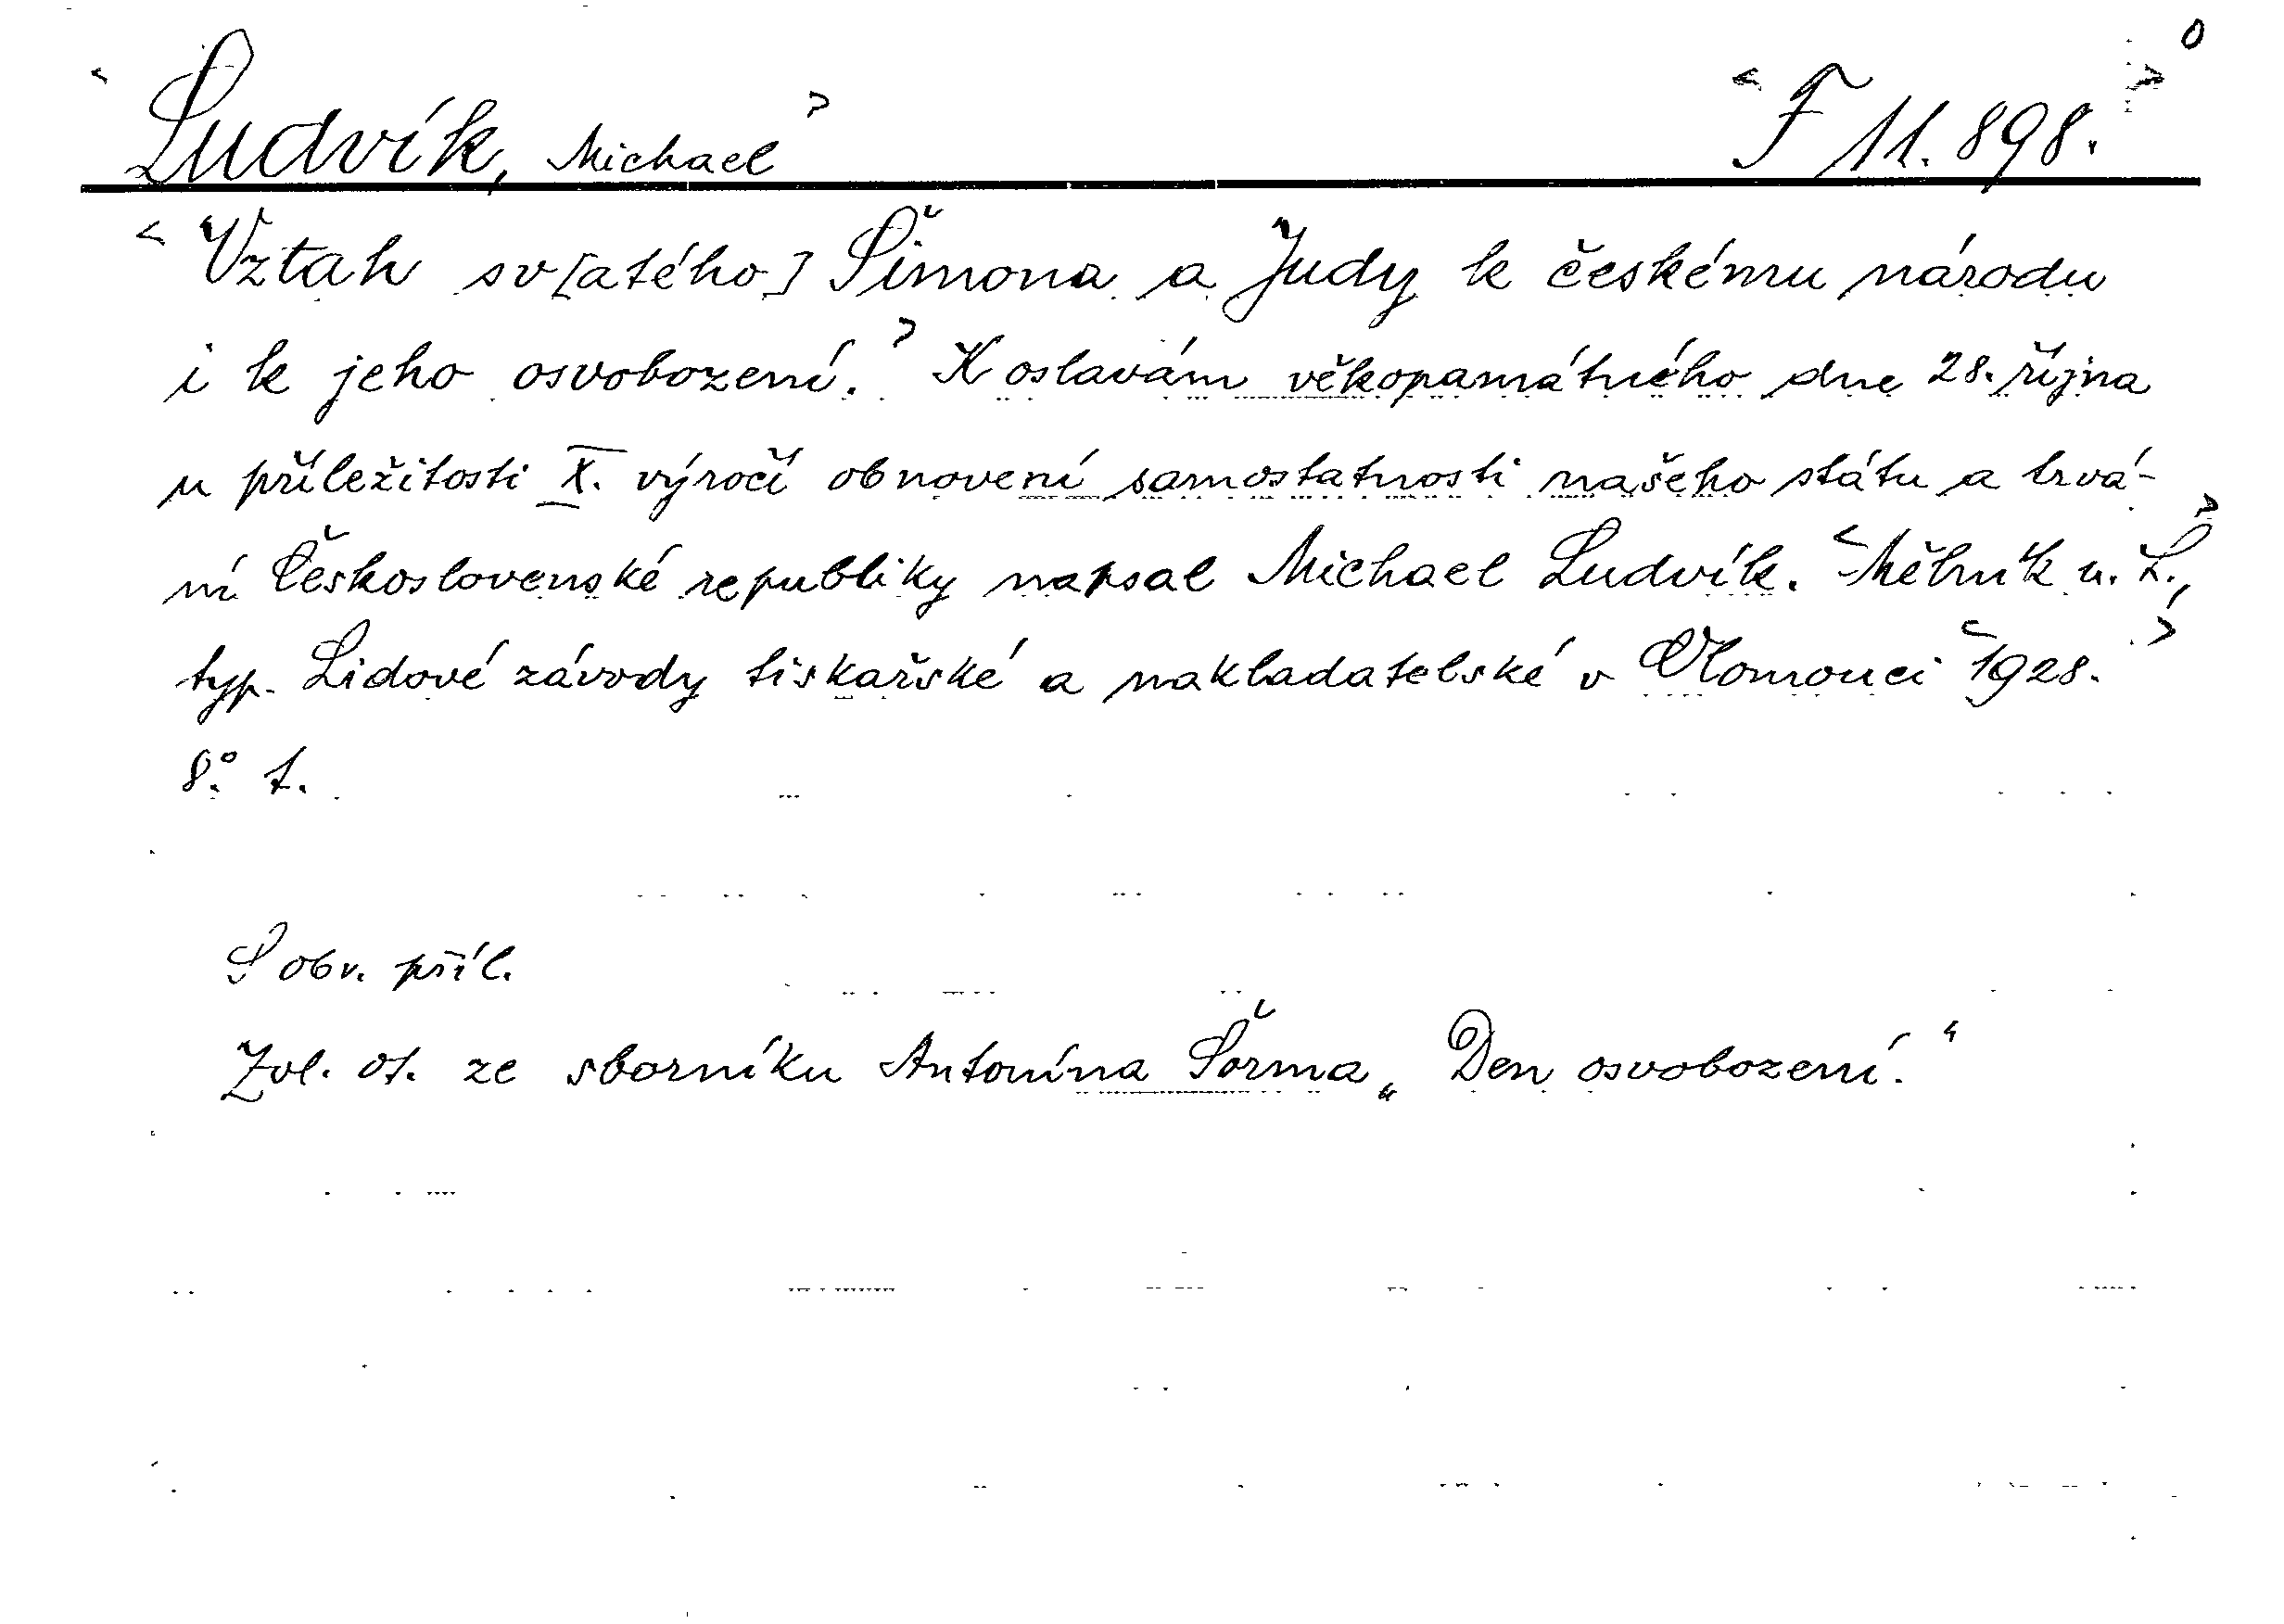 0
< Ludvík, Michael > < F 11.898. >
< Vztah sv[atého] Šimona a Judy k českému národu
i k jeho osvobození. > K oslavám věkopamátného dne 28. října
u příležitosti X. výročí obnovení samostatnosti našeho státu a trvá-
ní Československé republiky napsal Michael Ludvík. < Mělník n. L., >
typ. Lidové závody tiskařské a nakladatelské v Olomouci < 1928. >
8.° 1.
S obr. příl.
Zvl. ot. ze sborníku Antonína Šorma „Den osvobození.“